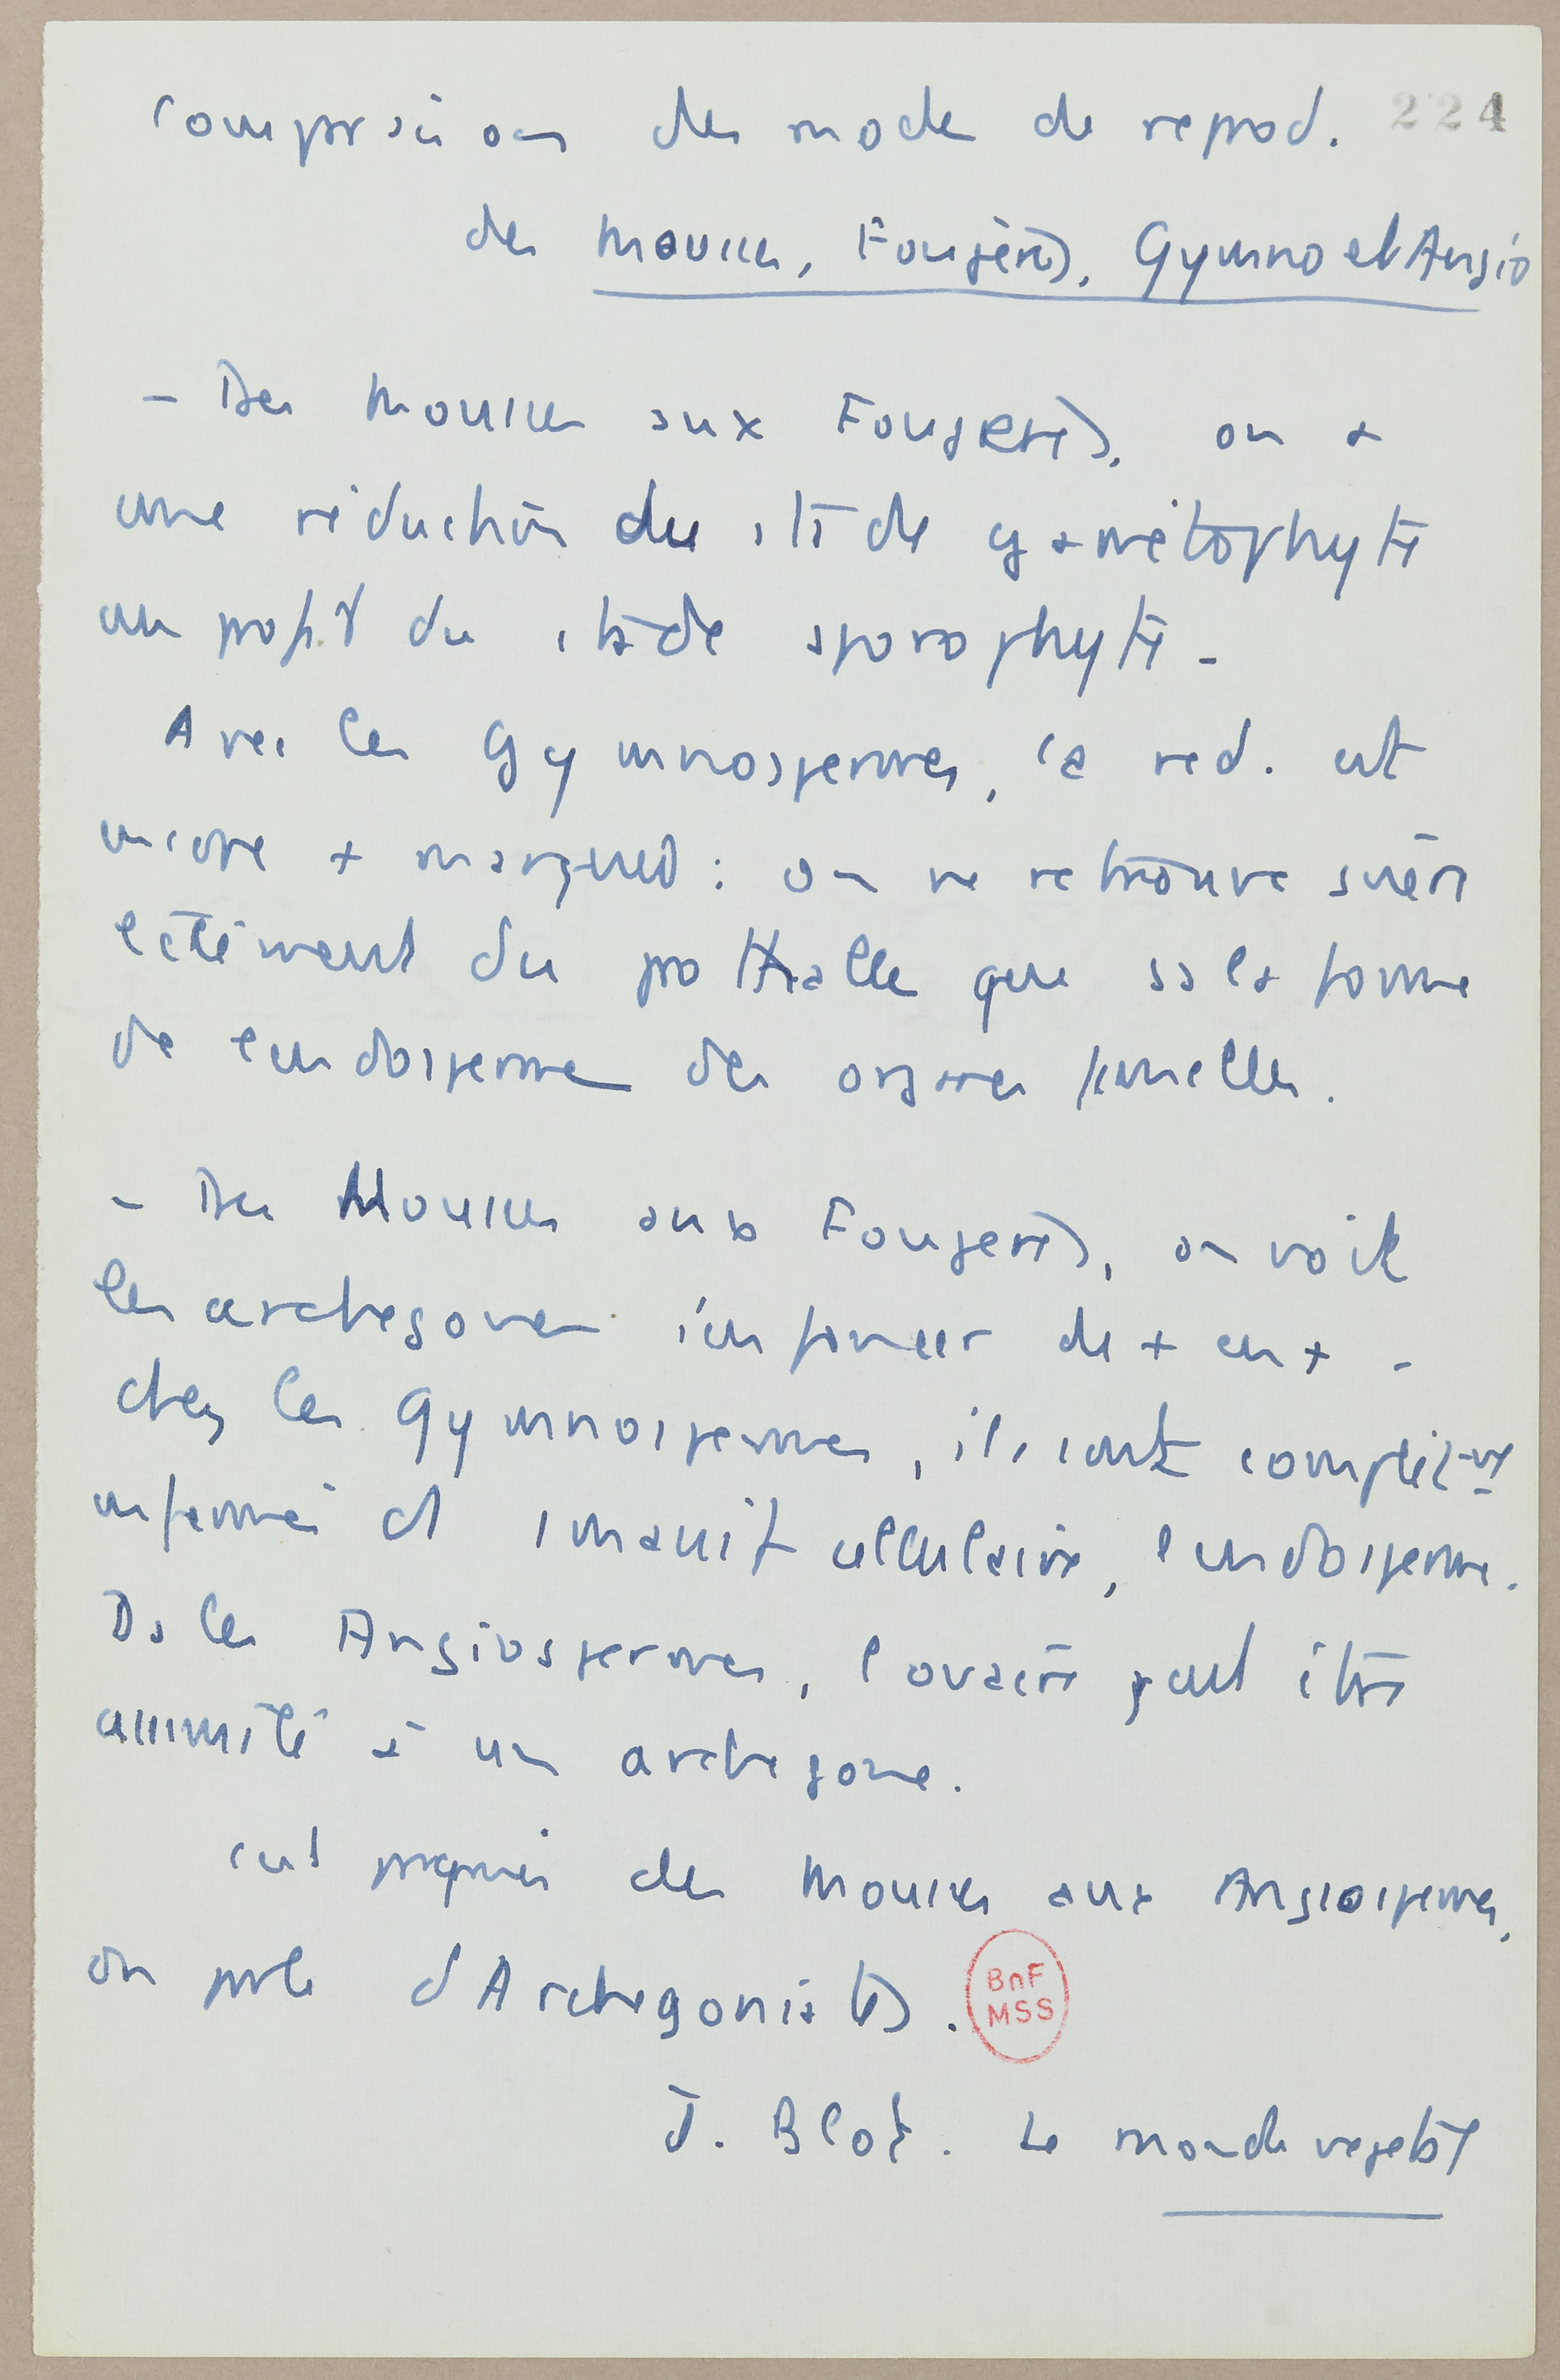 Comparaison des modes de reprod. 224
des Mousses, Fougères, Gymno et Angio
- Des Mousses aux Fougères, on a
une réduction du stade gamétophyte
au profit du stade sporophyte -
Avec les Gymnospermes, la red. est
encore + marquée : on ne retrouve
du prothalle que ss la forme
de l'endosperme des organes femelles.
- Des Mousses aux Fougeres, on voit
les archegones s'enfoncer de + en + -
chez les Gymnospermes, ils sont complètmt
enfermés ds 1 massif cellulaire, l'endosperme.
Ds les Angiospermes, l'ovaire peut être
assimilé à un archegone.
des Mousses aux Angiospermes,
on parle d'Archegoniates.
BnF
MSS
J. Blot. Le monde vegetal